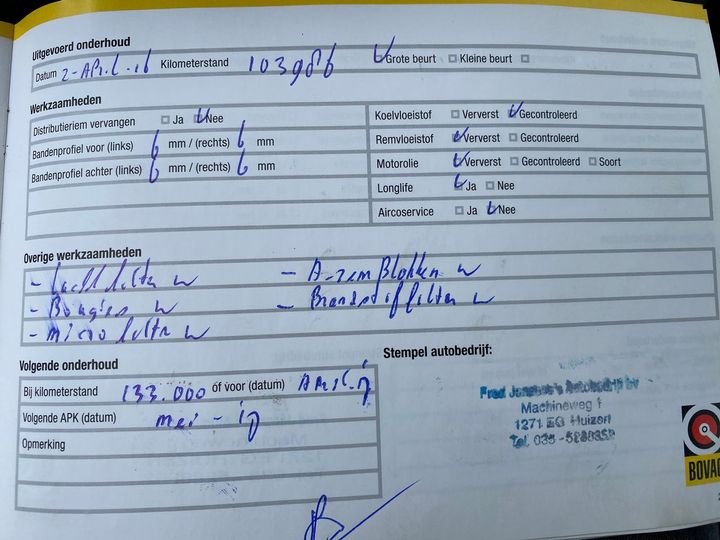 Uitgevoerd onderhoud
Datum 2-April-16 Kilometerstand 103986 Grote beurt Kleine beurt
Werkzaamheden
Distributieriem vervangen Ja Nee
Bandenprofiel voor (links) 6 mm / (rechts) 6 mm
Bandenprofiel achter (links) 6 mm / (rechts) 6 mm
Koelvloeistof Ververst Gecontroleerd
Remvloeistof Ververst Gecontroleerd
Motorolie Ververst Gecontroleerd Soort
Longlife Ja Nee
Aircoservice Ja Nee
Overige werkzaamheden
- Luchtfilter
- Bougies
- microfilter
- A-remBlokken
- Brandstoffilter
Volgende onderhoud
Bij kilometerstand 133.000 óf voor (datum) April
Volgende APK (datum) mei
Opmerking
Stempel autobedrijf:
Autobedrijf bv
Machineweg 1
1271 EG Huizen
Tel. 035-
BOVAG